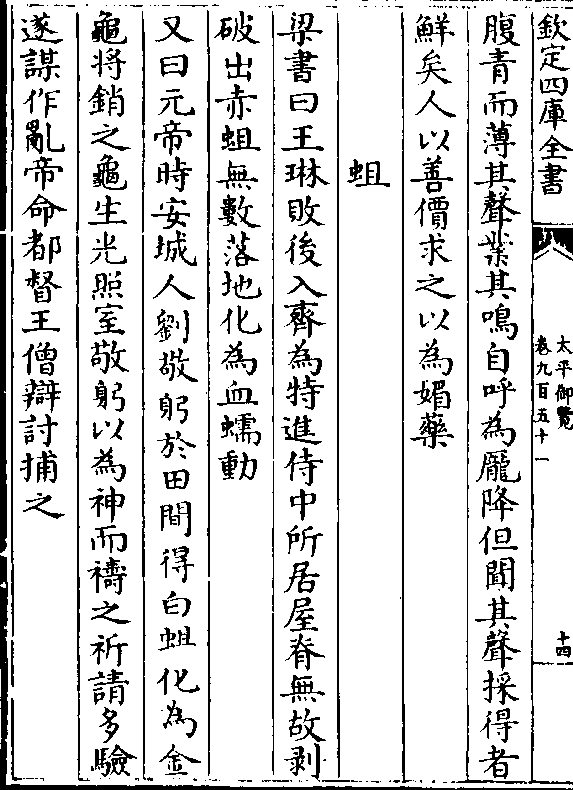 欽定四庫全書
太平御覽
卷九百五十一
十四
腹青而薄其聲㗼其鳴自呼為龎降但聞其聲採得者
鮮矣人以善價求之以為媚藥
蛆
梁書曰王琳敗後入齊為特進侍中所居屋脊無故剥
破出赤蛆無數落地化為血蠕動
又曰元帝時安城人劉敬躬於田間得白蛆化為金
龜將銷之龜生光照室敬躬以為神而禱之祈請多驗
遂謀作亂帝命都督王僧辯討捕之